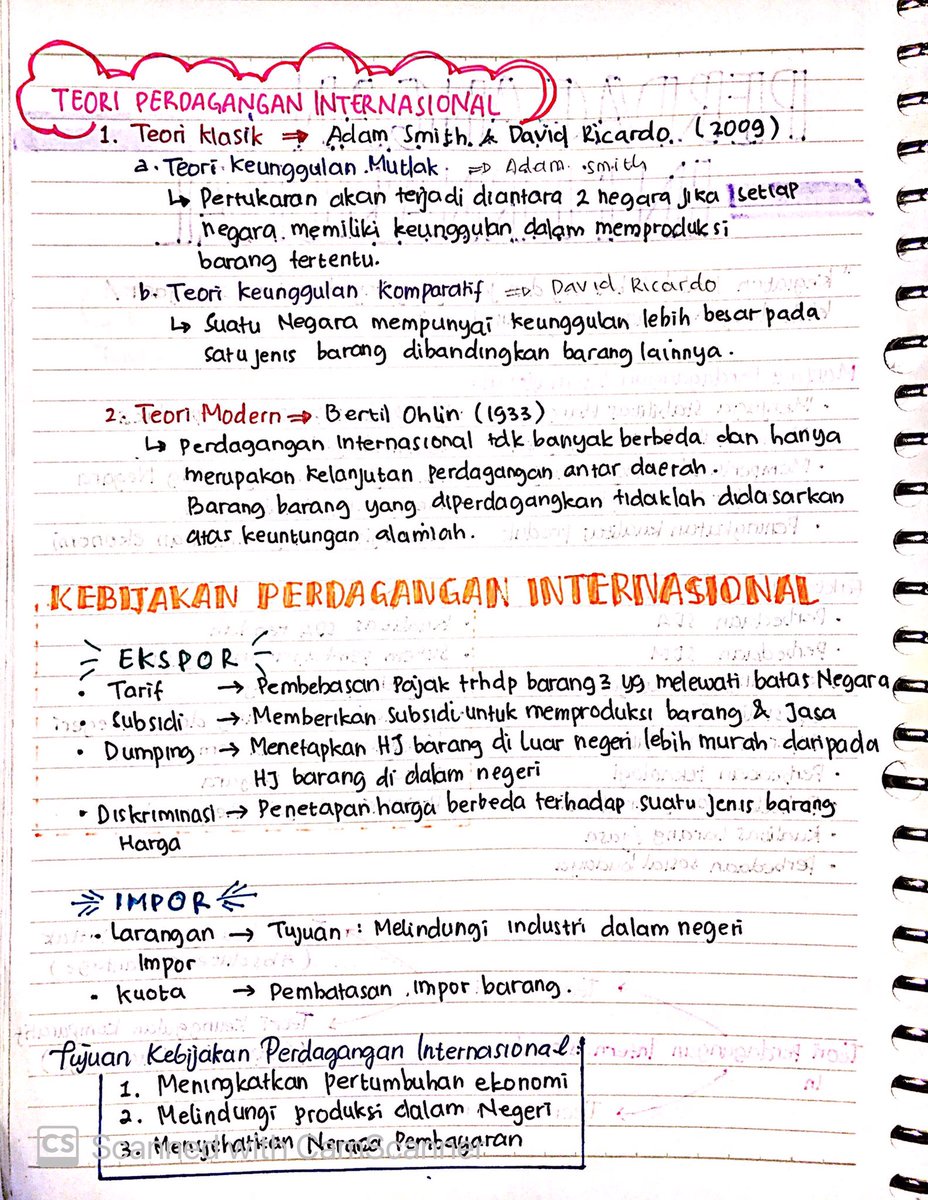 TEORI PERDAGANGAN INTERNASIONAL
1. Teori Klasik ⇒ Adam Smith & David Ricardo (2009)
a. Teori Keunggulan Mutlak ⇒ Adam smith
↳ Pertukaran akan terjadi diantara 2 negara jika setiap
negara memiliki keunggulan dalam memproduksi
barang tertentu.
b. Teori Keunggulan Komparatif ⇒ David Ricardo
↳ Suatu Negara mempunyai keunggulan lebih besar pada
satu jenis barang dibandingkan barang lainnya.
2. Teori Modern ⇒ Bertil Ohlin (1933)
↳ Perdagangan Internasional tdk banyak berbeda dan hanya
merupakan kelanjutan perdagangan antar daerah.
Barang barang yang diperdagangkan tidaklah didasarkan
atas keuntungan alamiah.
KEBIJAKAN PERDAGANGAN INTERNASIONAL
EKSPOR
• Tarif → Pembebasan Pajak trhdp barang3 yg melewati batas Negara
• Subsidi → Memberikan Subsidi untuk memproduksi barang & Jasa
• Dumping → Menetapkan HJ barang di Luar negeri lebih murah daripada
HJ barang di dalam negeri
• Diskriminasi → Penetapan harga berbeda terhadap suatu jenis barang
Harga
IMPOR
• Larangan → Tujuan : Melindungi industri dalam negeri
Impor
• Kuota → Pembatasan impor barang.
Tujuan Kebijakan Perdagangan Internasional :
1. Meningkatkan pertumbuhan ekonomi
2. Melindungi produksi dalam Negeri
3. Menyehatkan Neraca Pembayaran
CS Scanned with CamScanner